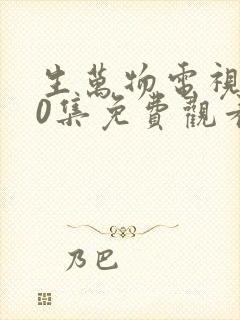 生萬物電視
0集免費觀看
乃巴